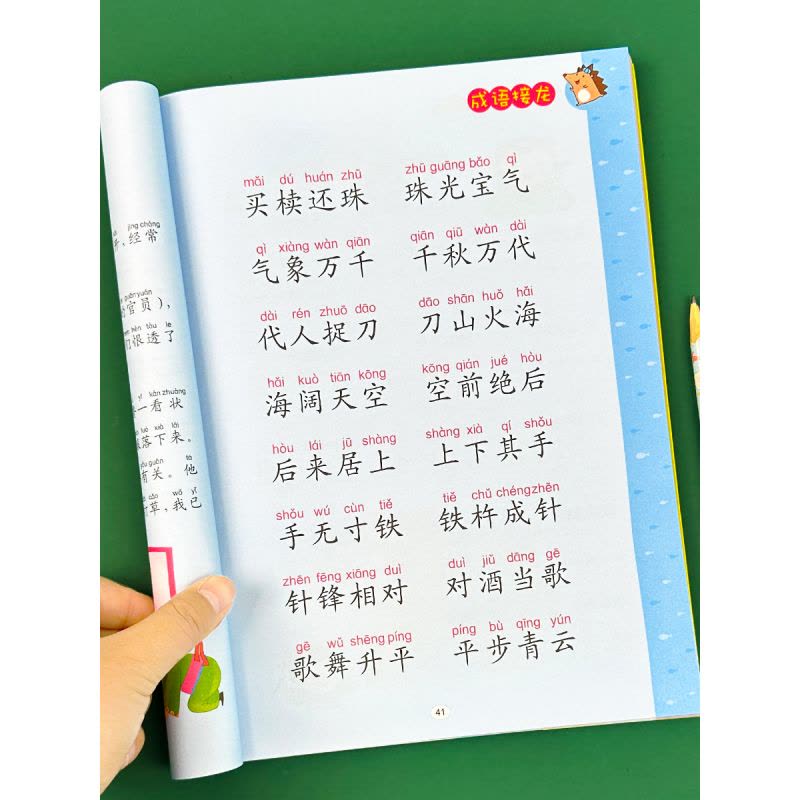 成语接龙
mǎi dú huán zhū zhū guāng bǎo qì
买椟还珠 珠光宝气
qì xiàng wàn qiān qiān qiū wàn dài
气象万千 千秋万代
dài rén zhuō dāo dāo shān huǒ hǎi
代人捉刀 刀山火海
hǎi kuò tiān kōng kōng qián jué hòu
海阔天空 空前绝后
hòu lái jū shàng shàng xià qí shǒu
后来居上 上下其手
shǒu wú cùn tiě tiě chǔ chéng zhēn
手无寸铁 铁杵成针
zhēn fēng xiāng duì duì jiǔ dāng gē
针锋相对 对酒当歌
gē wǔ shēng píng píng bù qīng yún
歌舞升平 平步青云
41
jīng cháng
,经常
guān yuán
官员),
hèn tòu le
恨透了
yí kàn zhuàng
一看状
luò xià lái
落下来。
yǒu guān tā
有关。他
cǎo wǒ yǐ
草,我已